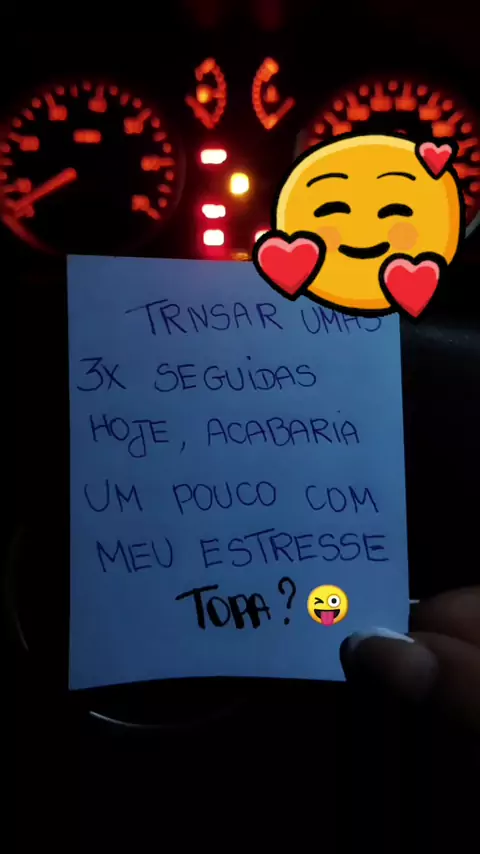 TRNSAR UMAS
3X SEGUIDAS
HOJE, ACABARIA
UM POUCO COM
MEU ESTRESSE
TOPA?